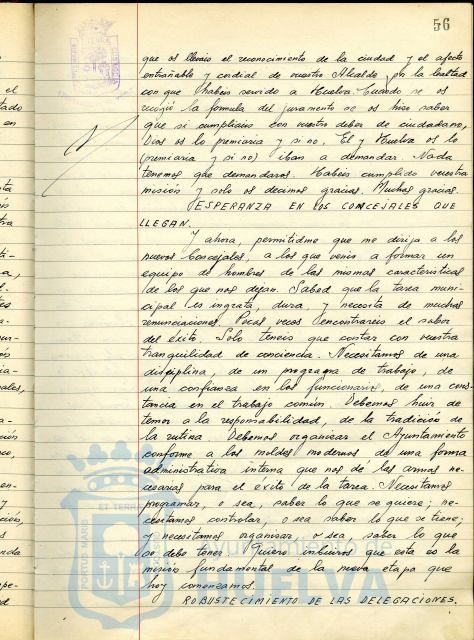 56
que os lleváis el reconocimiento de la ciudad y el afecto
entrañable y cordial de vuestro Alcalde por la lealtad
con que habéis servido a Huelva. Cuando se os
recogió la formula del juramento se os hizo saber
que si cumpliais con vuestro deber de ciudadano,
Dios os lo premiaria y si no, El y Huelva os lo
(premiaria y si no) iban a demandar. Nada
tenemos que demandaros. Habeis cumplido vuestra
misión y solo os decimos gracias. Muchas gracias.
ESPERANZA EN LOS CONCEJALES QUE
LLEGAN.
Y ahora, permitidme que me dirija a los
nuevos Concejales, a los que venis a formar un
equipo de hombres de las mismas caracteristicas
de los que nos dejan. Sabed que la tarea muni-
cipal es ingrata, dura, y necesita de muchas
renunciaciones. Pocas veces encontrareis el sabor
del éxito. Solo teneis que contar con vuestra
tranquilidad de conciencia. Necesitamos de una
disciplina, de un programa de trabajo, de
una confianza en los funcionarios, de una cons-
tancia en el trabajo común. Debemos huir de
temor a la responsabilidad, de la tradición de
la rutina. Debemos organizar el Ayuntamiento
conforme a los moldes modernos de una forma
administrativa interna que nos de las armas ne-
cesarias para el éxito de la tarea. Necesitamos
programar, o sea, saber lo que se quiere; ne-
cesitamos controlar, o sea saber lo que se tiene,
y necesitamos organizar, o sea, saber lo que
se debe tener. Quiero imbuiros que esta es la
misión fundamental de la nueva etapa que
hoy comenzamos.
ROBUSTECIMIENTO DE LAS DELEGACIONES.
Ayuntamiento de
HUELVA
PORTUS MARIS
ET TERRAE